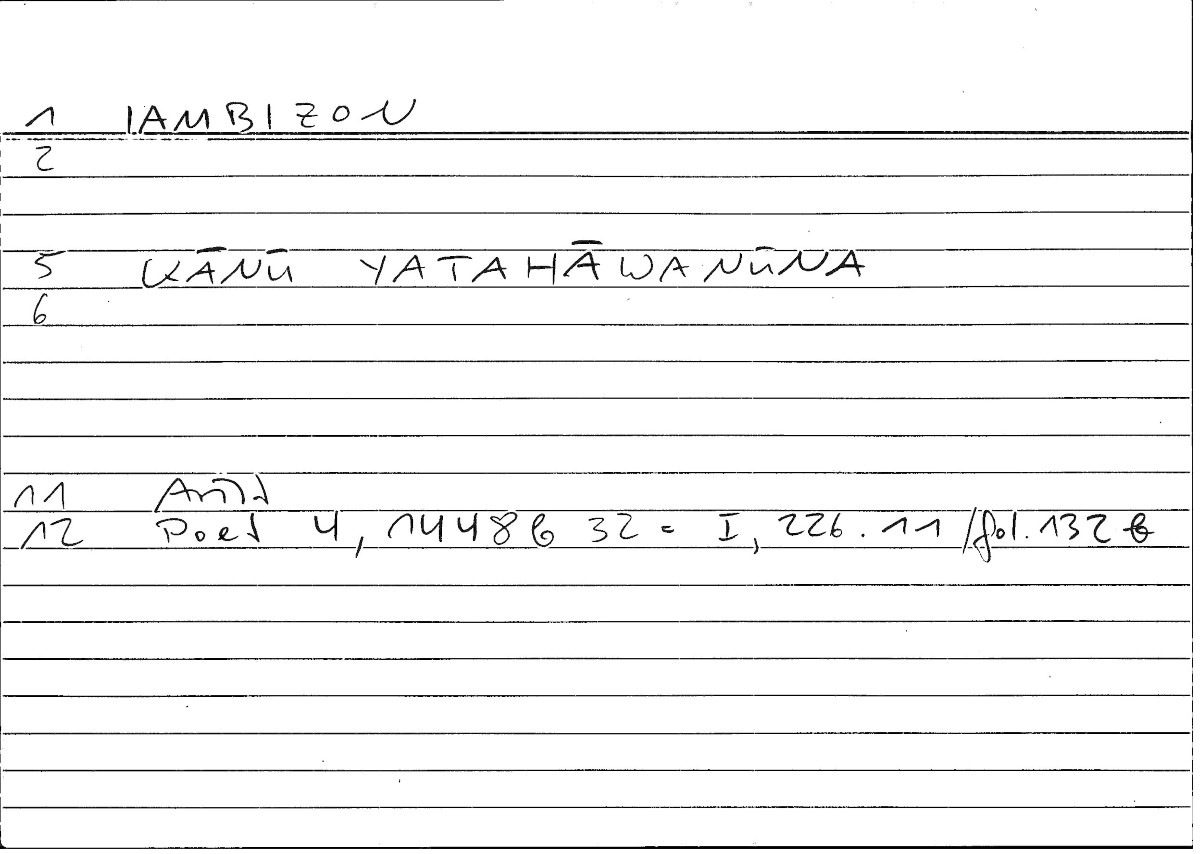 1 IAMBIZON
2
5 KĀNŪ YATAHĀWANŪNA
6
11 Arist
12 Poet 4, 1448b 32 = I, 226.11/fol.132b